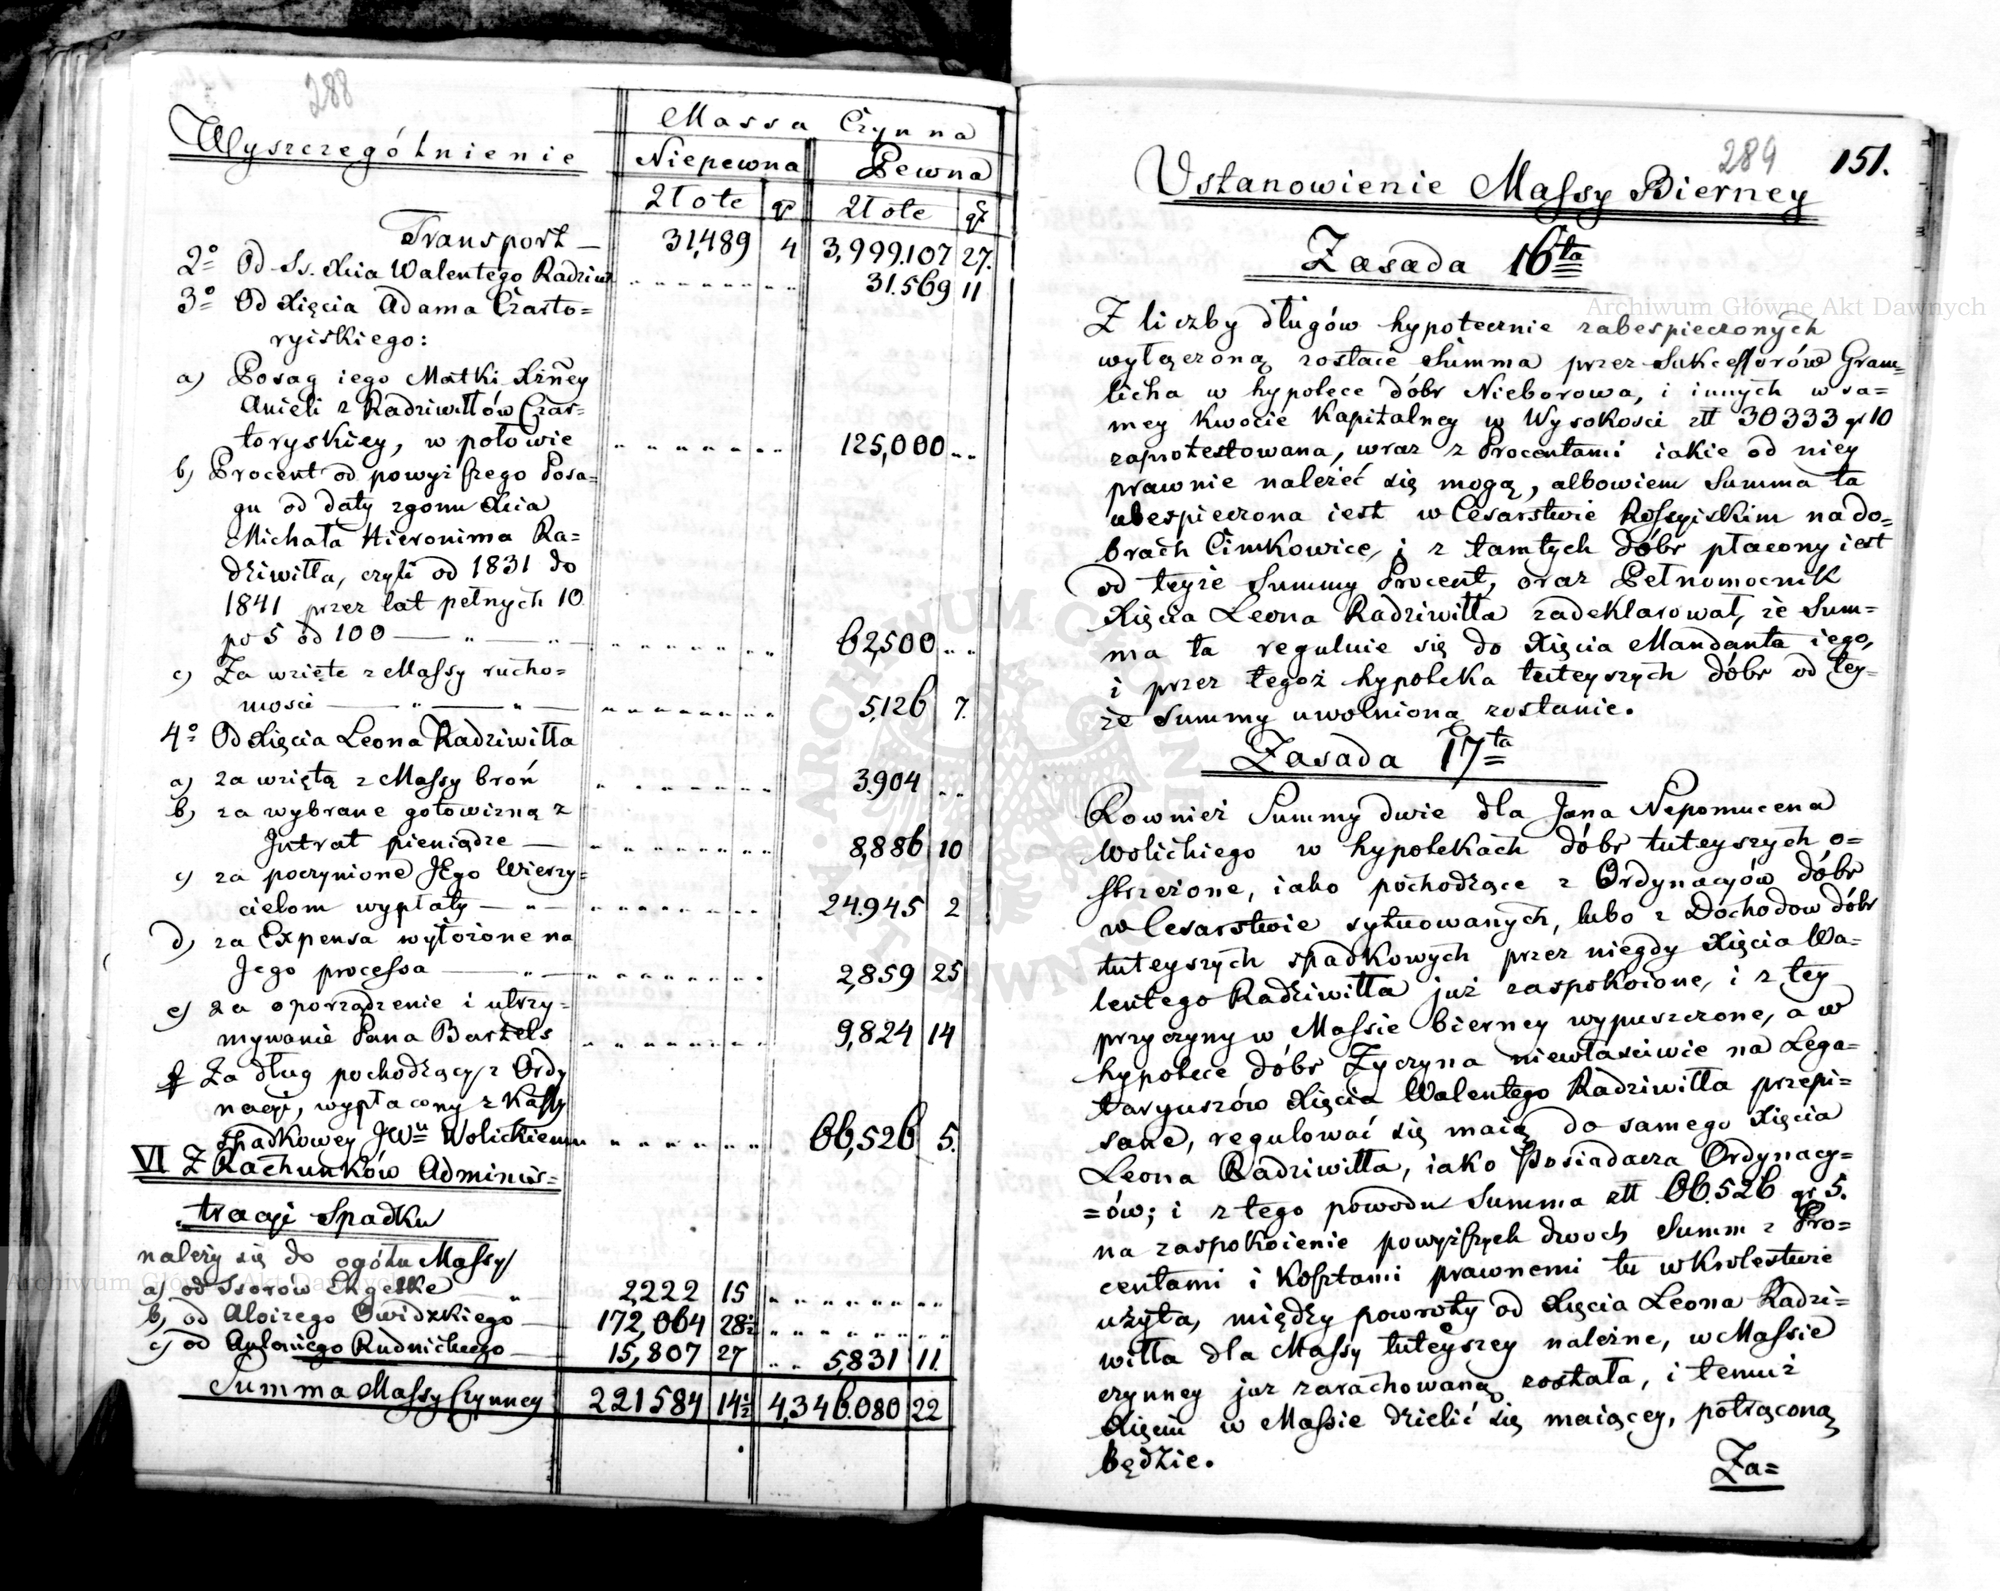 288
Massa Czynna
Wyszczególnienie
Niepewna Pewna
Złote gr Złote gr
Transport — 31,489 4 3,999.107 27.
2º Od Ss. Xcia Walentego Radziw 31.569 11
3º Od Xięcia Adama Czarto=
ryiskiego:
a) Posag iego Matki Xżney
Anieli z Radziwiłłów Czar=
toryskiey, w połowie 125,000
b) Procent od powyższego Posa=
gu od daty zgonu Xcia
Michała Hieronima Ra=
dziwiłła, czyli od 1831 do
1841 przez lat pełnych 10
po 5 od 100 — " — " 62,500
c) Za wzięte z Massy rucho=
mosci — " — " — 5,126 7.
4º Od Xięcia Leona Radziwiłła
a) za wziętą z Massy broń 3.904
b) za wybrane gotowizną z
Intrat pieniądze — 8,886 10
c) za poczynione JEgo Wierzy=
cielom wypłaty — " — 24.945 2
d) za Expensa wyłożone na
Jego processa — " — 2,859 25
e) za oporządzenie i utrzy=
mywanie Pana Bartels 9,824 14
f Za dług pochodzący z Ordy
nacyi, wypłacony z Kassy
spadkowey JWu Wolickiemu 66,526 5.
VI Z Rachunków Adminis=
tracyi Spadku
należy się do ogółu Massy
a) od Ssorów " 2,222 15
b) od Aloizego Owidzkiego — 172,064 28½
c) od Antoniego Rudnickiego — 15,807 27 5,831 11.
Summa Massy Czynney 221584 14½ 4,346.080 22
289 151.
Ustanowienie Massy Bierney
Zasada 16ta
Z liczby długów hypotecznie zabespieczonych
wyłączoną zostaie Summa przez Sukcessorów Gram=
licha w hypotece dóbr Nieborowa, i innych w sa=
mey Kwocie Kapitalney w Wysokosci złł 30333 gr 10
zaprotestowana, wraz z Procentami iakie od niey
prawnie należéć się mogą, albowiem Summa ta
ubespieczona iest w Cesarstwie Rossyiskim na do=
brach Cimkowice, i z tamtych dóbr płacony iest
od teyże Summy Procent, oraz Pełnomocnik
Xięcia Leona Radziwiłła zadeklarował, że Sum=
ma ta reguluie się do Xięcia Mandanta iego,
i przez tegoż hypoteka tuteyszych dóbr od tey=
że Summy uwolnioną zostanie.
Zasada 17ta
Rownież Summy dwie dla Jana Nepomucena
Wolickiego w hypotekach dóbr tuteyszych o=
strzeżone, iako pochodzące z Ordynacyów dóbr
w Cesarstwie sytuowanych, lubo z Dochodow dóbr
tuteyszych spadkowych przez niegdy Xięcia Wa=
lentego Radziwiłła już zaspokoione, i z tey
przyczyny w Massie bierney wypuszczone, a w
hypotece dóbr Zyczyna niewłaściwie na Lega=
taryuszów Xięcia Walentego Radziwiłła przepi=
sane, regulować się maią do samego Xięcia
Leona Radziwiłła, iako Posiadacza Ordynacy=
=ów; i z tego powodu Summa złł 66.526 gr 5.
na zaspokoienie powyższych dwoch Summ z Pro=
centami i Kosztami prawnemi tu w Krolestwie
użyta, między powroty od Xięcia Leona Radzi=
wiłła dla Massy tuteyszey należne, w Massie
czynney już zarachowaną została, i temuż
Xięciu w Massie dzielić się maiącey, potrąconą
będzie.
Za=
Archiwum Główne Akt Dawnych
Archiwum Główne Akt Dawnych
ARCHIWUM GŁÓWNE AKT DAWNYCH